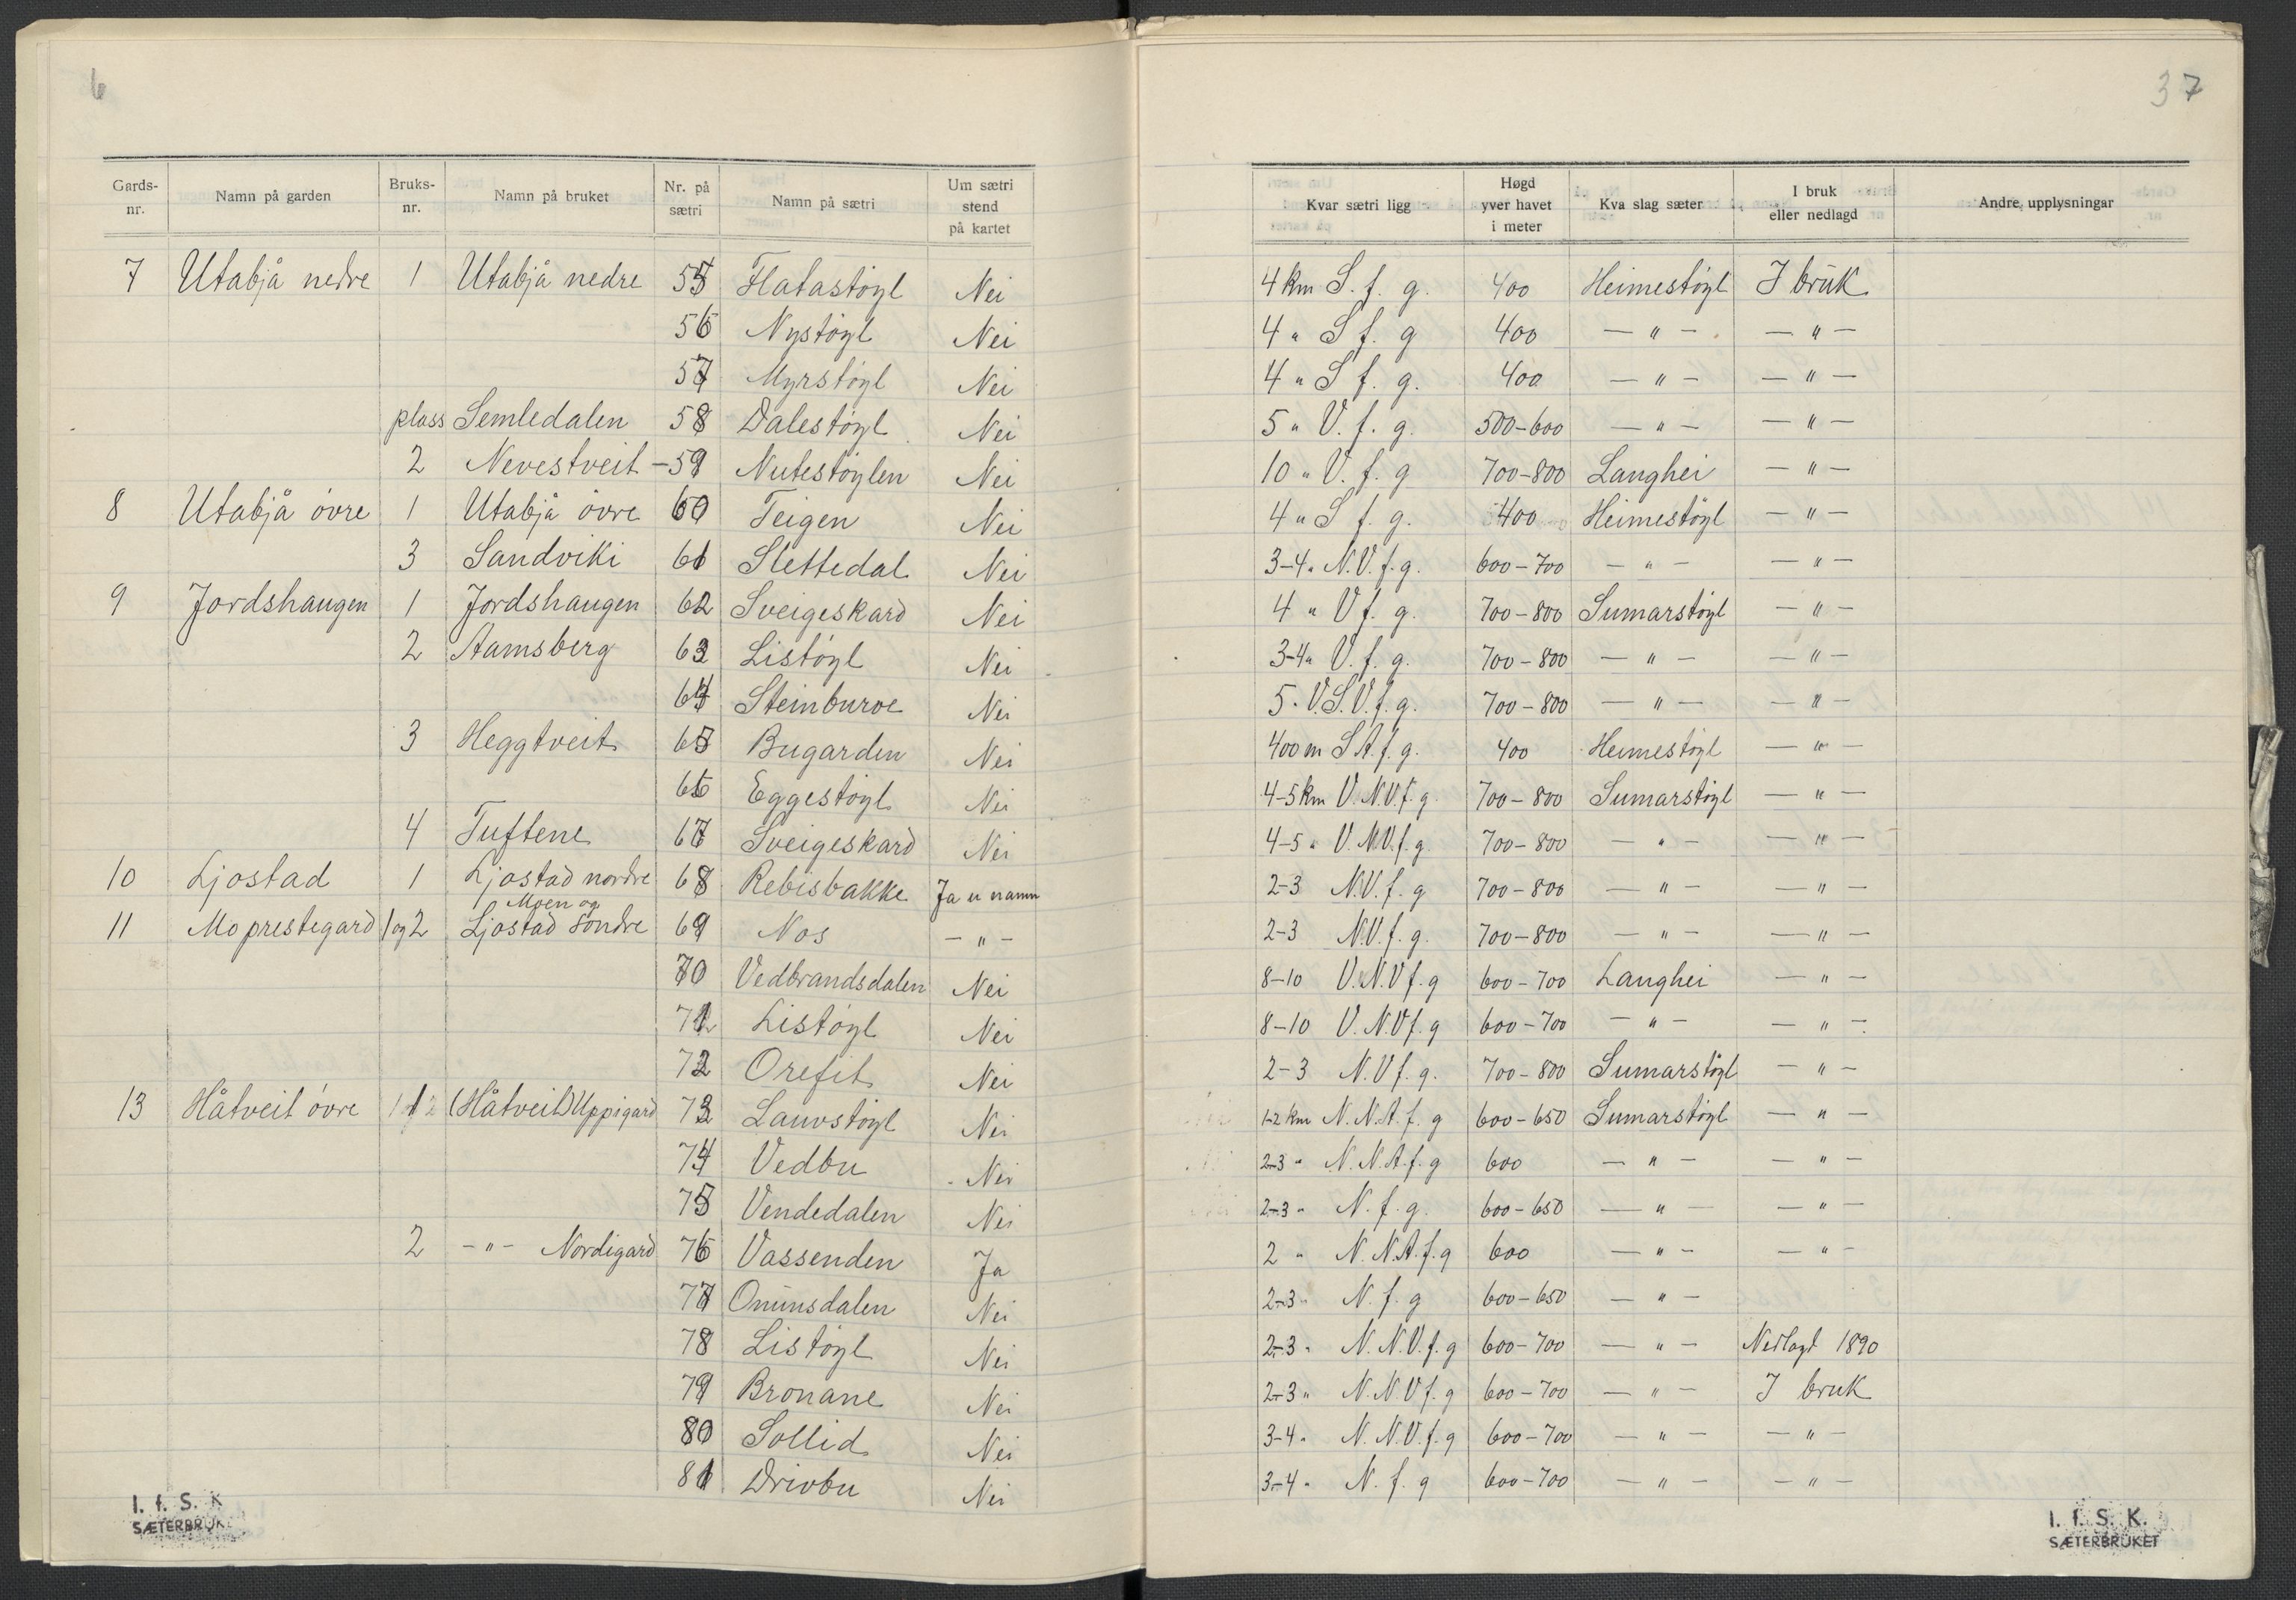 6
Gards-nr. Namn på garden Bruks-nr. Namn på bruket Nr. på sætri Namn på sætri Um sætri stend på kartet
7 Utabjå nedre 1 Utabjå nedre 55 Flatastøyl Nei
56 Nystøyl Nei
57 Myrstøyl Nei
plass Semledalen 58 Dalestøyl Nei
2 Nevestveit - 59 Nutestøylen Nei
8 Utabjå øvre 1 Utabjå øvre 60 Teigen Nei
3 Sandviki 61 Slettedal Nei
9 Jordshaugen 1 Jordshaugen 62 Sveigeskard Nei
2 Aamsberg 63 Listøyl Nei
64 Steinburoe Nei
3 Heggtveit 65 Bugarden Nei
66 Eggestøyl Nei
4 Tuftene 67 Sveigeskard Nei
10 Ljostad 1 Ljostad nordre 68 Rebisbakke Ja u namn
Moen og
11 Mo prestegard 1 og 2 Ljostad søndre 69 Nos — " —
70 Vedbrandsdalen Nei
71 Listøyl Nei
72 Orefit Nei
13 Håtveit øvre 1 (Håtveit) Uppigard 73 Lauvstøyl Nei
74 Vedbu Nei
75 Vendedalen Nei
2 — " — Nordigard 76 Vassenden Ja
77 Onunsdalen Nei
78 Listøyl Nei
79 Bronane Nei
80 Sollid Nei
81 Drivbu Nei
I. f. S. K
SÆTERBRUK
37
Kvar sætri ligg Høgd yver havet i meter Kva slag sæter I bruk eller nedlagd Andre upplysningar
4 km S. f. g. 400 Heimestøyl I bruk
4 " S f. g 400 — " — — " —
4 " S f. g. 400 — " — — " —
5 " V. f. g. 500-600 — " — — " —
10 " V. f. g 700-800 Langhei — " —
4 " S f. g. 400 Heimestøyl — " —
3-4 " N.V. f. g. 600-700 — " — — " —
4 " V f. g. 700-800 Sumarstøyl — " —
3-4 " V. f. g. 700-800 — " — — " —
5 " V.S.V. f. g. 700-800 — " — — " —
400 m S A. f. g. 400 Heimestøyl — " —
4-5 km V. N.V. f. g. 700-800 Sumarstøyl — " —
4-5 " V. N.V. f. g. 700-800 — " — — " —
2-3 N.V. f. g 700-800 — " — — " —
2-3 N.V. f. g. 700-800 — " — — " —
8-10 V.N.V f. g 600-700 Langhei — " —
8-10 V.N.V f. g 600-700 — " — — " —
2-3 N.V f. g. 700-800 Sumarstøyl — " —
1-2 km N.N.A. f. g 600-650 Sumarstøyl — " —
2-3 " N.N.A. f. g 600 — " — — " —
2-3 " N. f. g. 600-650 — " — — " —
2 " N. N.A. f. g 600 — " — — " —
2-3 " N. f. g 600-650 — " —
2-3 " N. N.V. f. g 600-700 — " — Nedlagt 1890
2-3 " N.N.V f. g 600-700 — " — I bruk
3-4 " N. N.V. f. g 600-700 — " — — " —
3-4 " N. f. g 600-700 — " — — " —
I. f. S. K.
SÆTERBRUKET